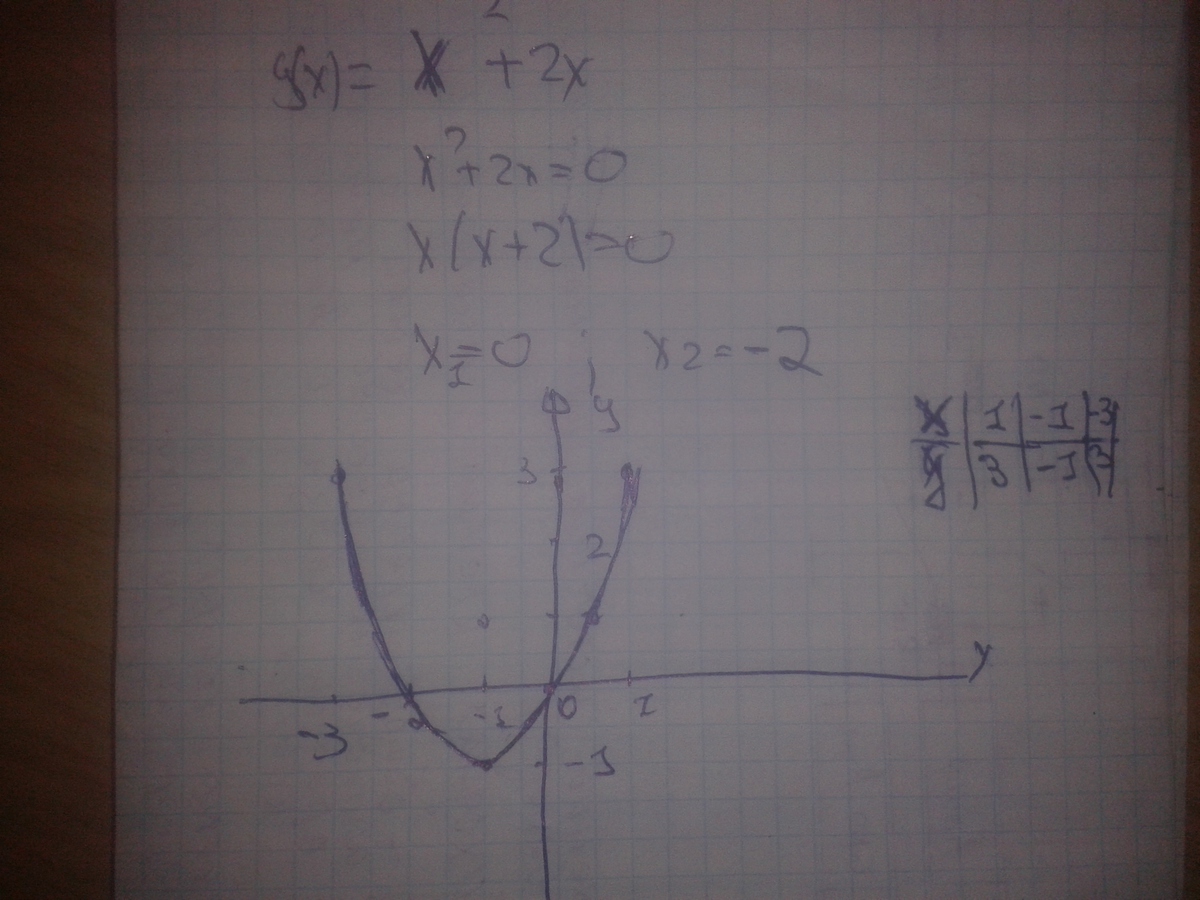 g(x) = x² + 2x
x² + 2x = 0
x(x+2) = 0
x₁ = 0 ; x₂ = -2
x | 1 | -1 | -3
y | 3 | -1 | 3
y
3
2
-3 -2 -1 0 1
-1